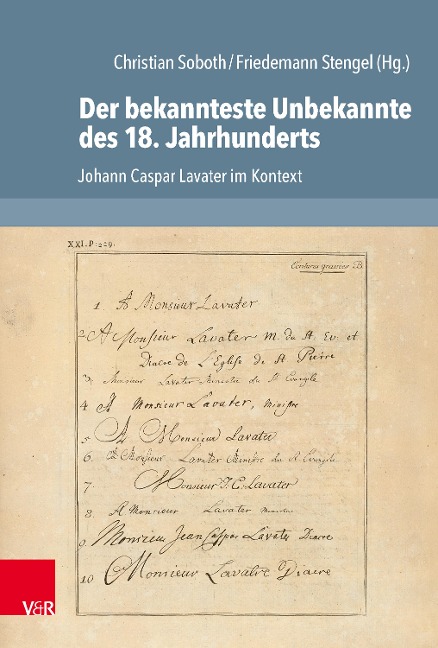 Christian Soboth/Friedemann Stengel (Hg.)
Der bekannteste Unbekannte
des 18. Jahrhunderts
Johann Caspar Lavater im Kontext
XXI. P. 329.
1. A Monsieur Lavater
2. A Monsieur Lavater M. du St. Ev. et
Diacre de L'Eglise de St. Pierre
3. Monsieur Lavater Ministre du St. Evangile
4 A Monsieur Lavater, Ministre
5 A Monsieur Lavater
6. A Monsieur Lavater Ministre du St. Evangile
7 Monsieur J. C. Lavater
8. A Monsieur Lavater
9. Monsieur Jean Caspar Lavater Diacre
10 Monsieur Lavatre Diacre
V&R